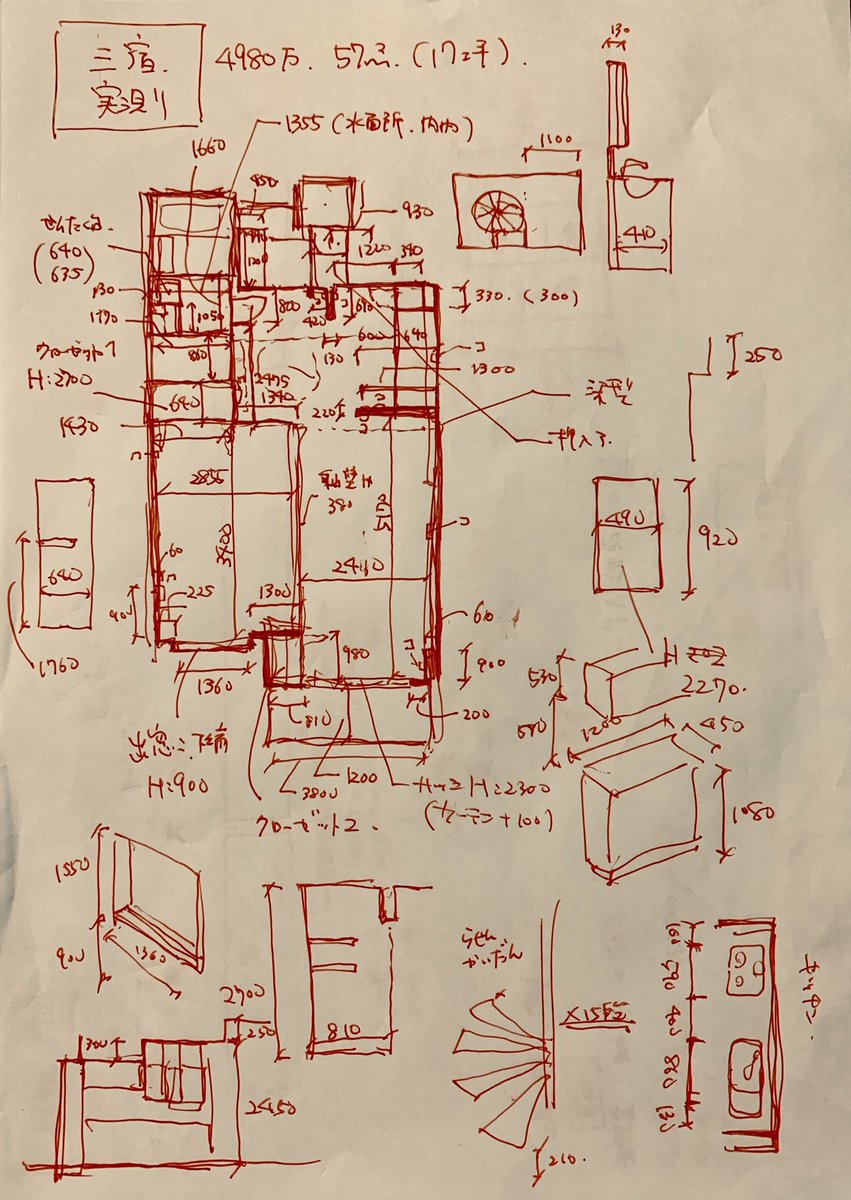 三宿
実測り
4980万. 57㎡. (17コ平).
130
1355 (水面所. 内内)
1660
450
1100
せんたくき.
(640
635)
930
1220
340
410
130
1050
800
420
690
330. (300)
1190
クローゼット1
H:2700
860
600
640
250
130
1300
2475
1340
640
220
1430
押入下
2855
380
490
920
3400
2410
640
60
225
1300
900
980
900
1760
1360
810
200
530
H
2270.
1200
450
H:900
1200
3800
サッシ H:2300
(カーテン+100)
クローゼット2.
1080
1550
900
1360
2700
250
300
810
2450
らせん
かいだん
×15段
210.
160
590
400
860
キッチン.